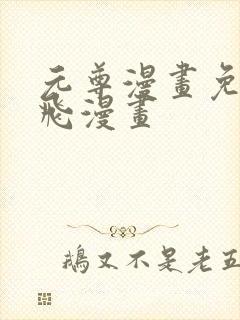 元尊漫畫免
飛漫畫
鵝又不是老五